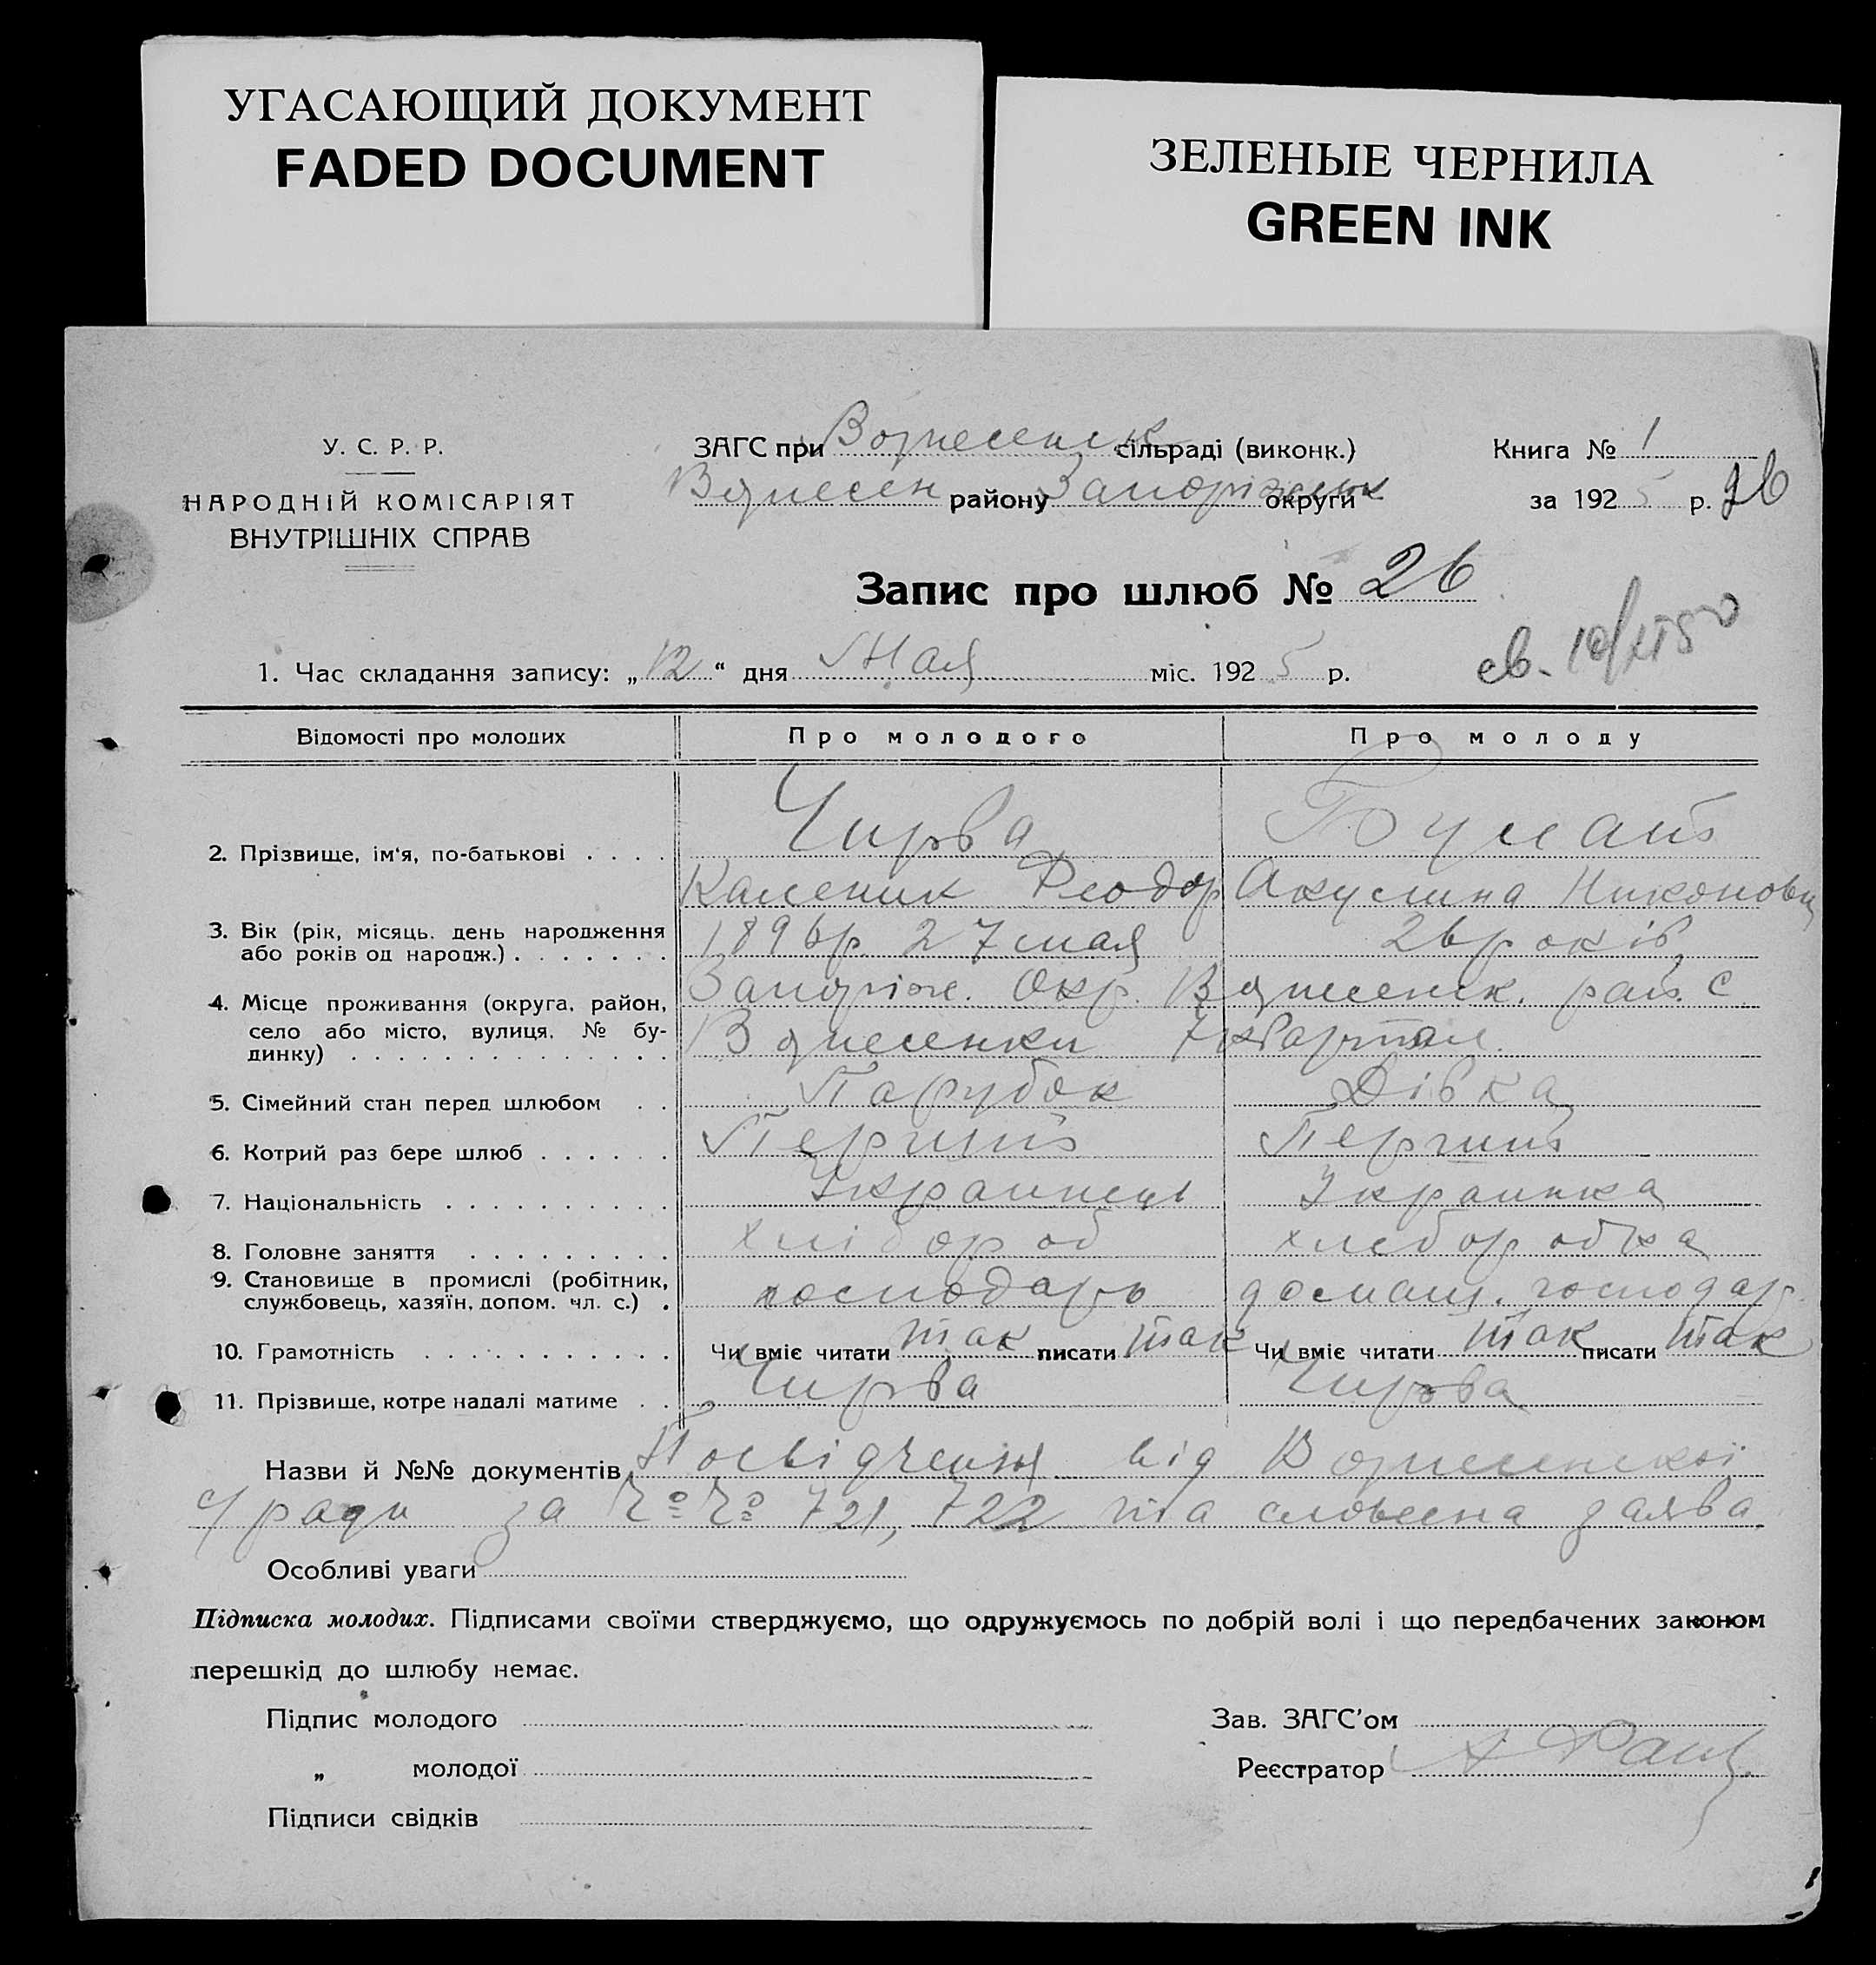 УГАСАЮЩИЙ ДОКУМЕНТ
FADED DOCUMENT
ЗЕЛЕНЫЕ ЧЕРНИЛА
GREEN INK
У. С. Р. Р.
НАРОДНІЙ КОМІСАРІЯТ
ВНУТРІШНІХ СПРАВ
ЗАГС при Вознесенск сільраді (виконк.)
Вознесен району Запоріжськ округи
Книга № 1
за 1925 р. 26
Запис про шлюб № 26
1. Час складання запису: „12“ дня Мая міс. 1925 р.
св.
Відомості про молодих Про молодого Про молоду
2. Прізвище, ім'я, по-батькові . . . . Чирва
Каленик Феодор Акулина Никоновна
3. Вік (рік, місяць. день народження або років од народж.) . . . . . . . 1896р. 27 мая 26 років
4. Місце проживання (округа, район, село або місто, вулиця, № будинку) . . . . . . . . . . . . . . Запоріж. Окр. Вознесенск. рай. С
Вознесенки 7 квартал.
5. Сімейний стан перед шлюбом . . Парубок Дівка
6. Котрий раз бере шлюб . . . . . . Перший Перший
7. Національність . . . . . . . . . . Украинець Украинка
8. Головне заняття . . . . . . . . . хлібороб хлеборобка
9. Становище в промислі (робітник, службовець, хазяїн, допом. чл. с.) . господарь домашн. господар.
10. Грамотність . . . . . . . . . . . Чи вміє читати так писати так Чи вміє читати так писати так
11. Прізвище, котре надалі матиме . . Чирва Чирва
Назви й №№ документів Посвідчення від Вознесенскої
с/ради за №№ 721, 722 та словесна заява
Особливі уваги
Підписка молодих. Підписами своїми стверджуємо, що одружуємось по добрій волі і що передбачених законом
перешкід до шлюбу немає.
Підпис молодого
Зав. ЗАГС'ом
„ молодої
Реєстратор
Підписи свідків